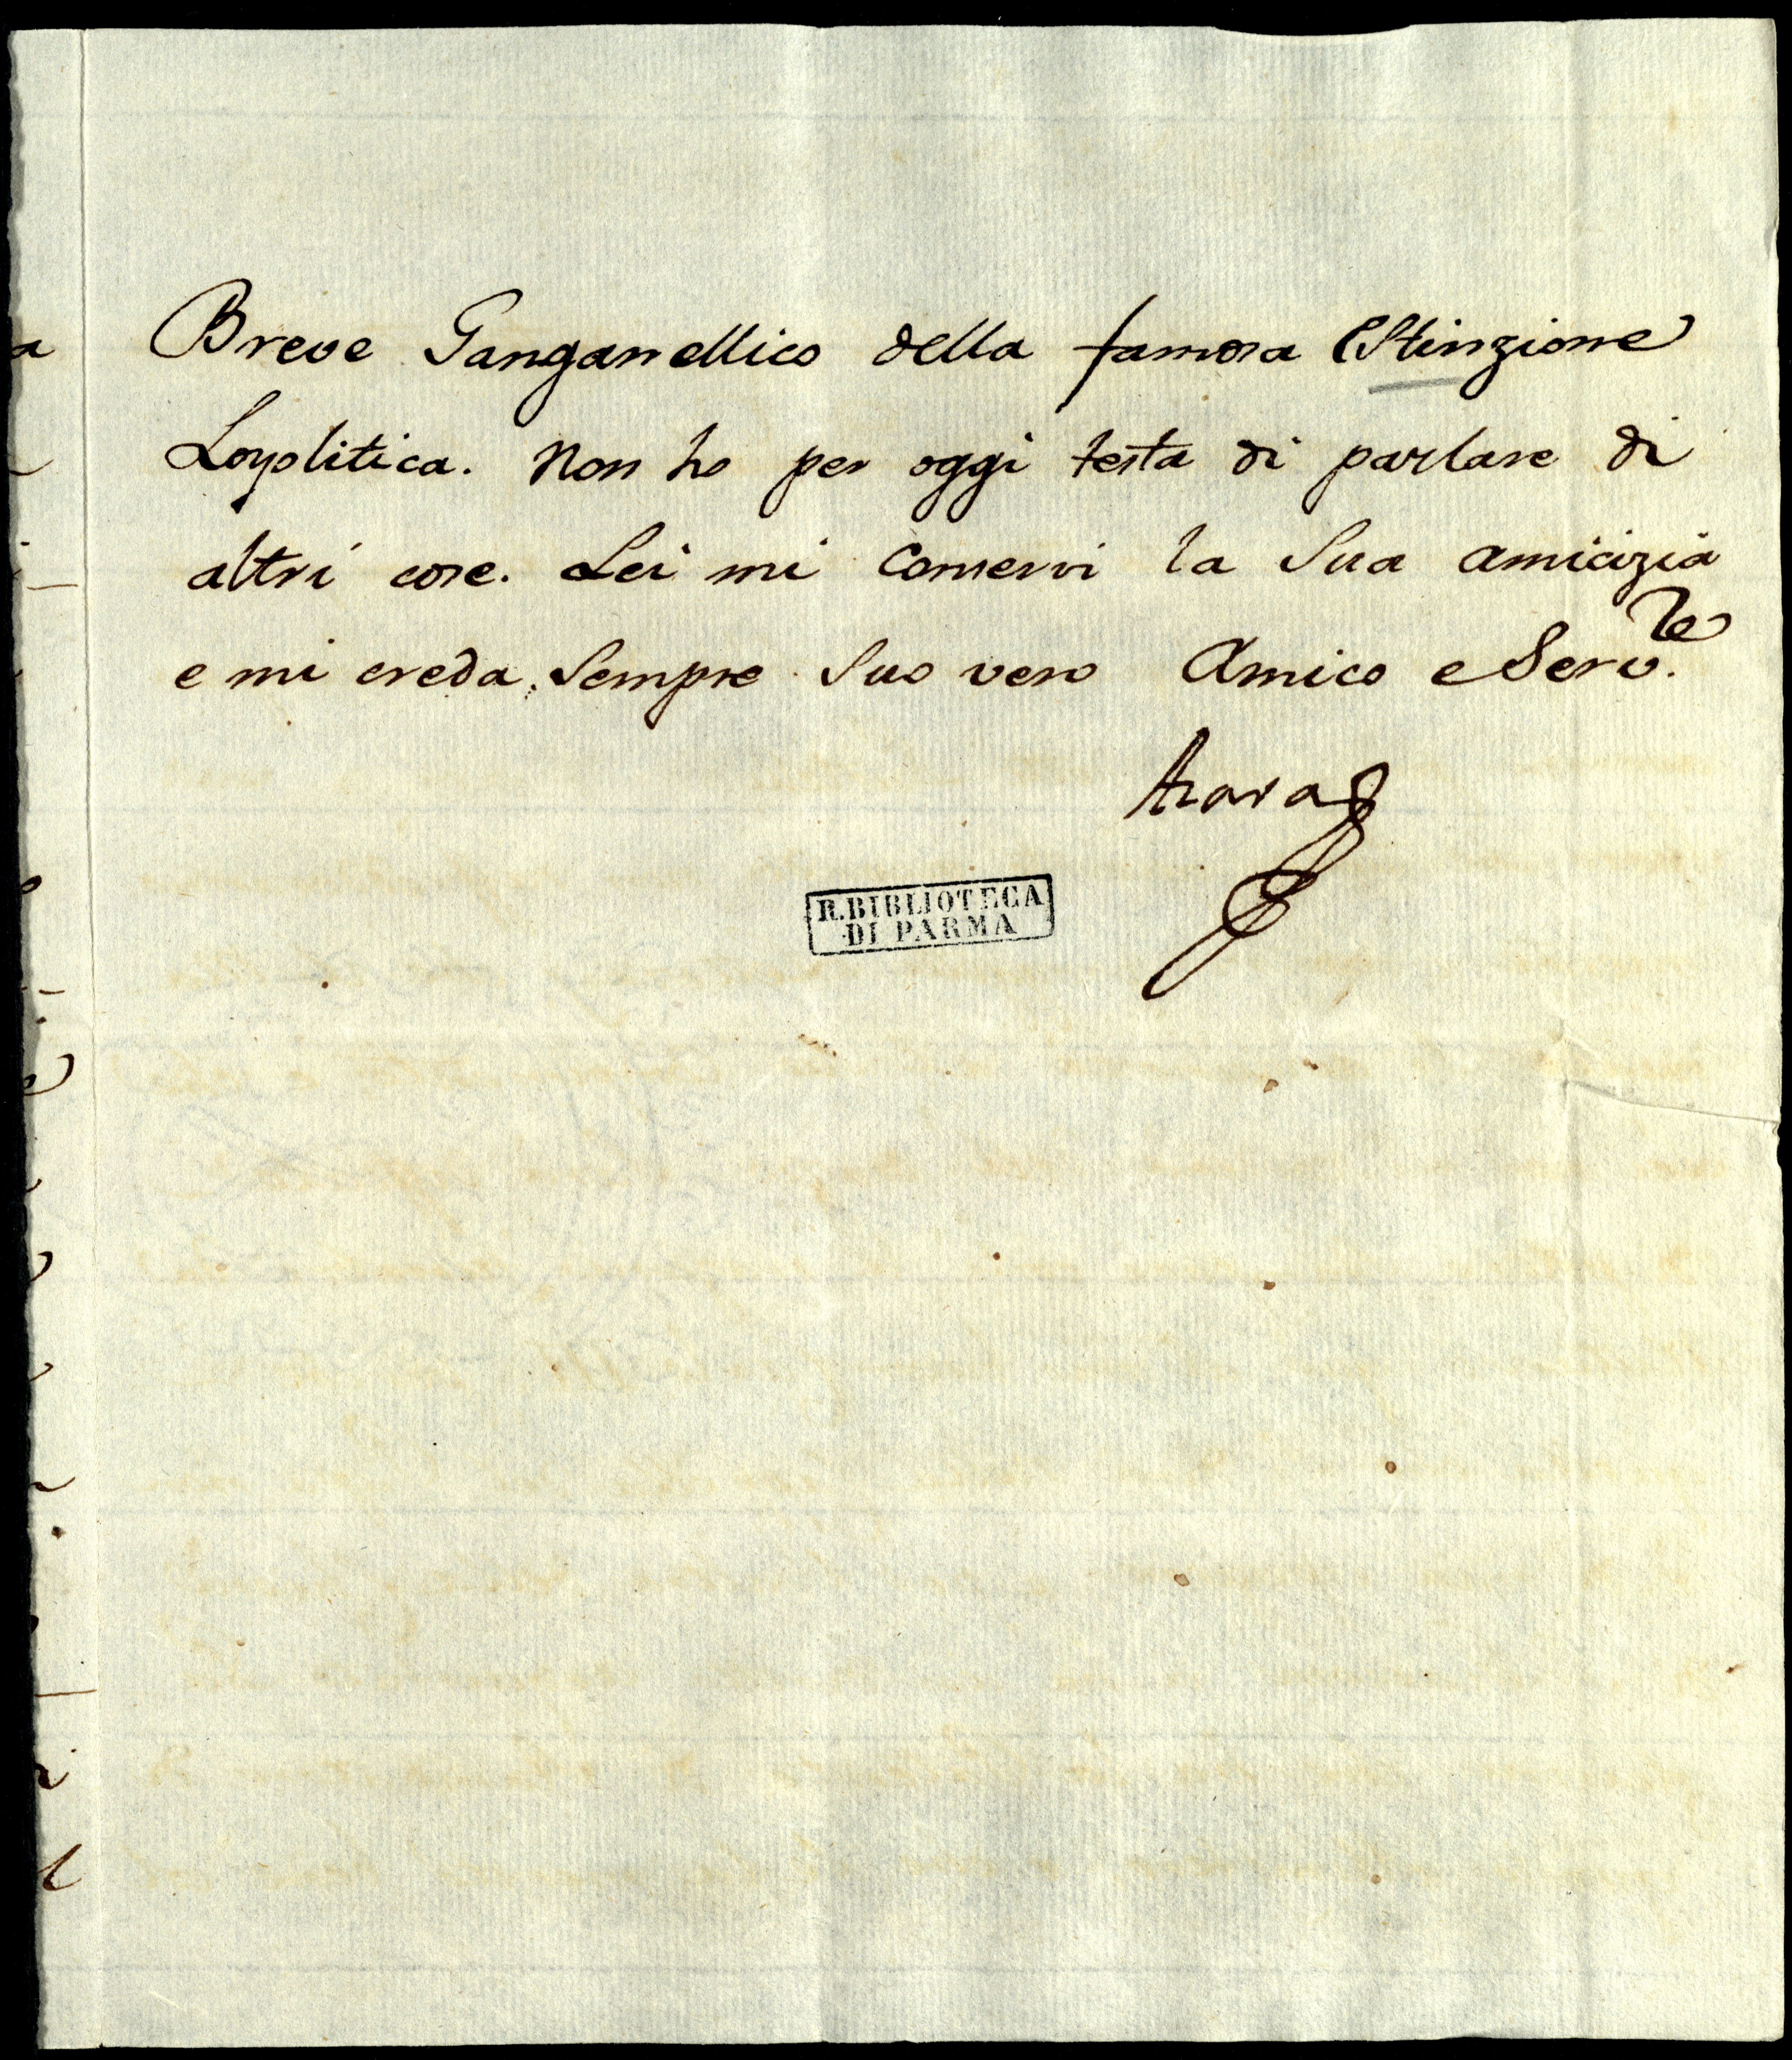 Breve Ganganellico della famosa Estinzione
Loyolitica. Non ho per oggi testa di parlare di
altri cose. Lei mi conservi la Sua amicizia
e mi creda sempre Suo vero Amico e Serv.re
Azara
R. BIBLIOTECA
DI PARMA